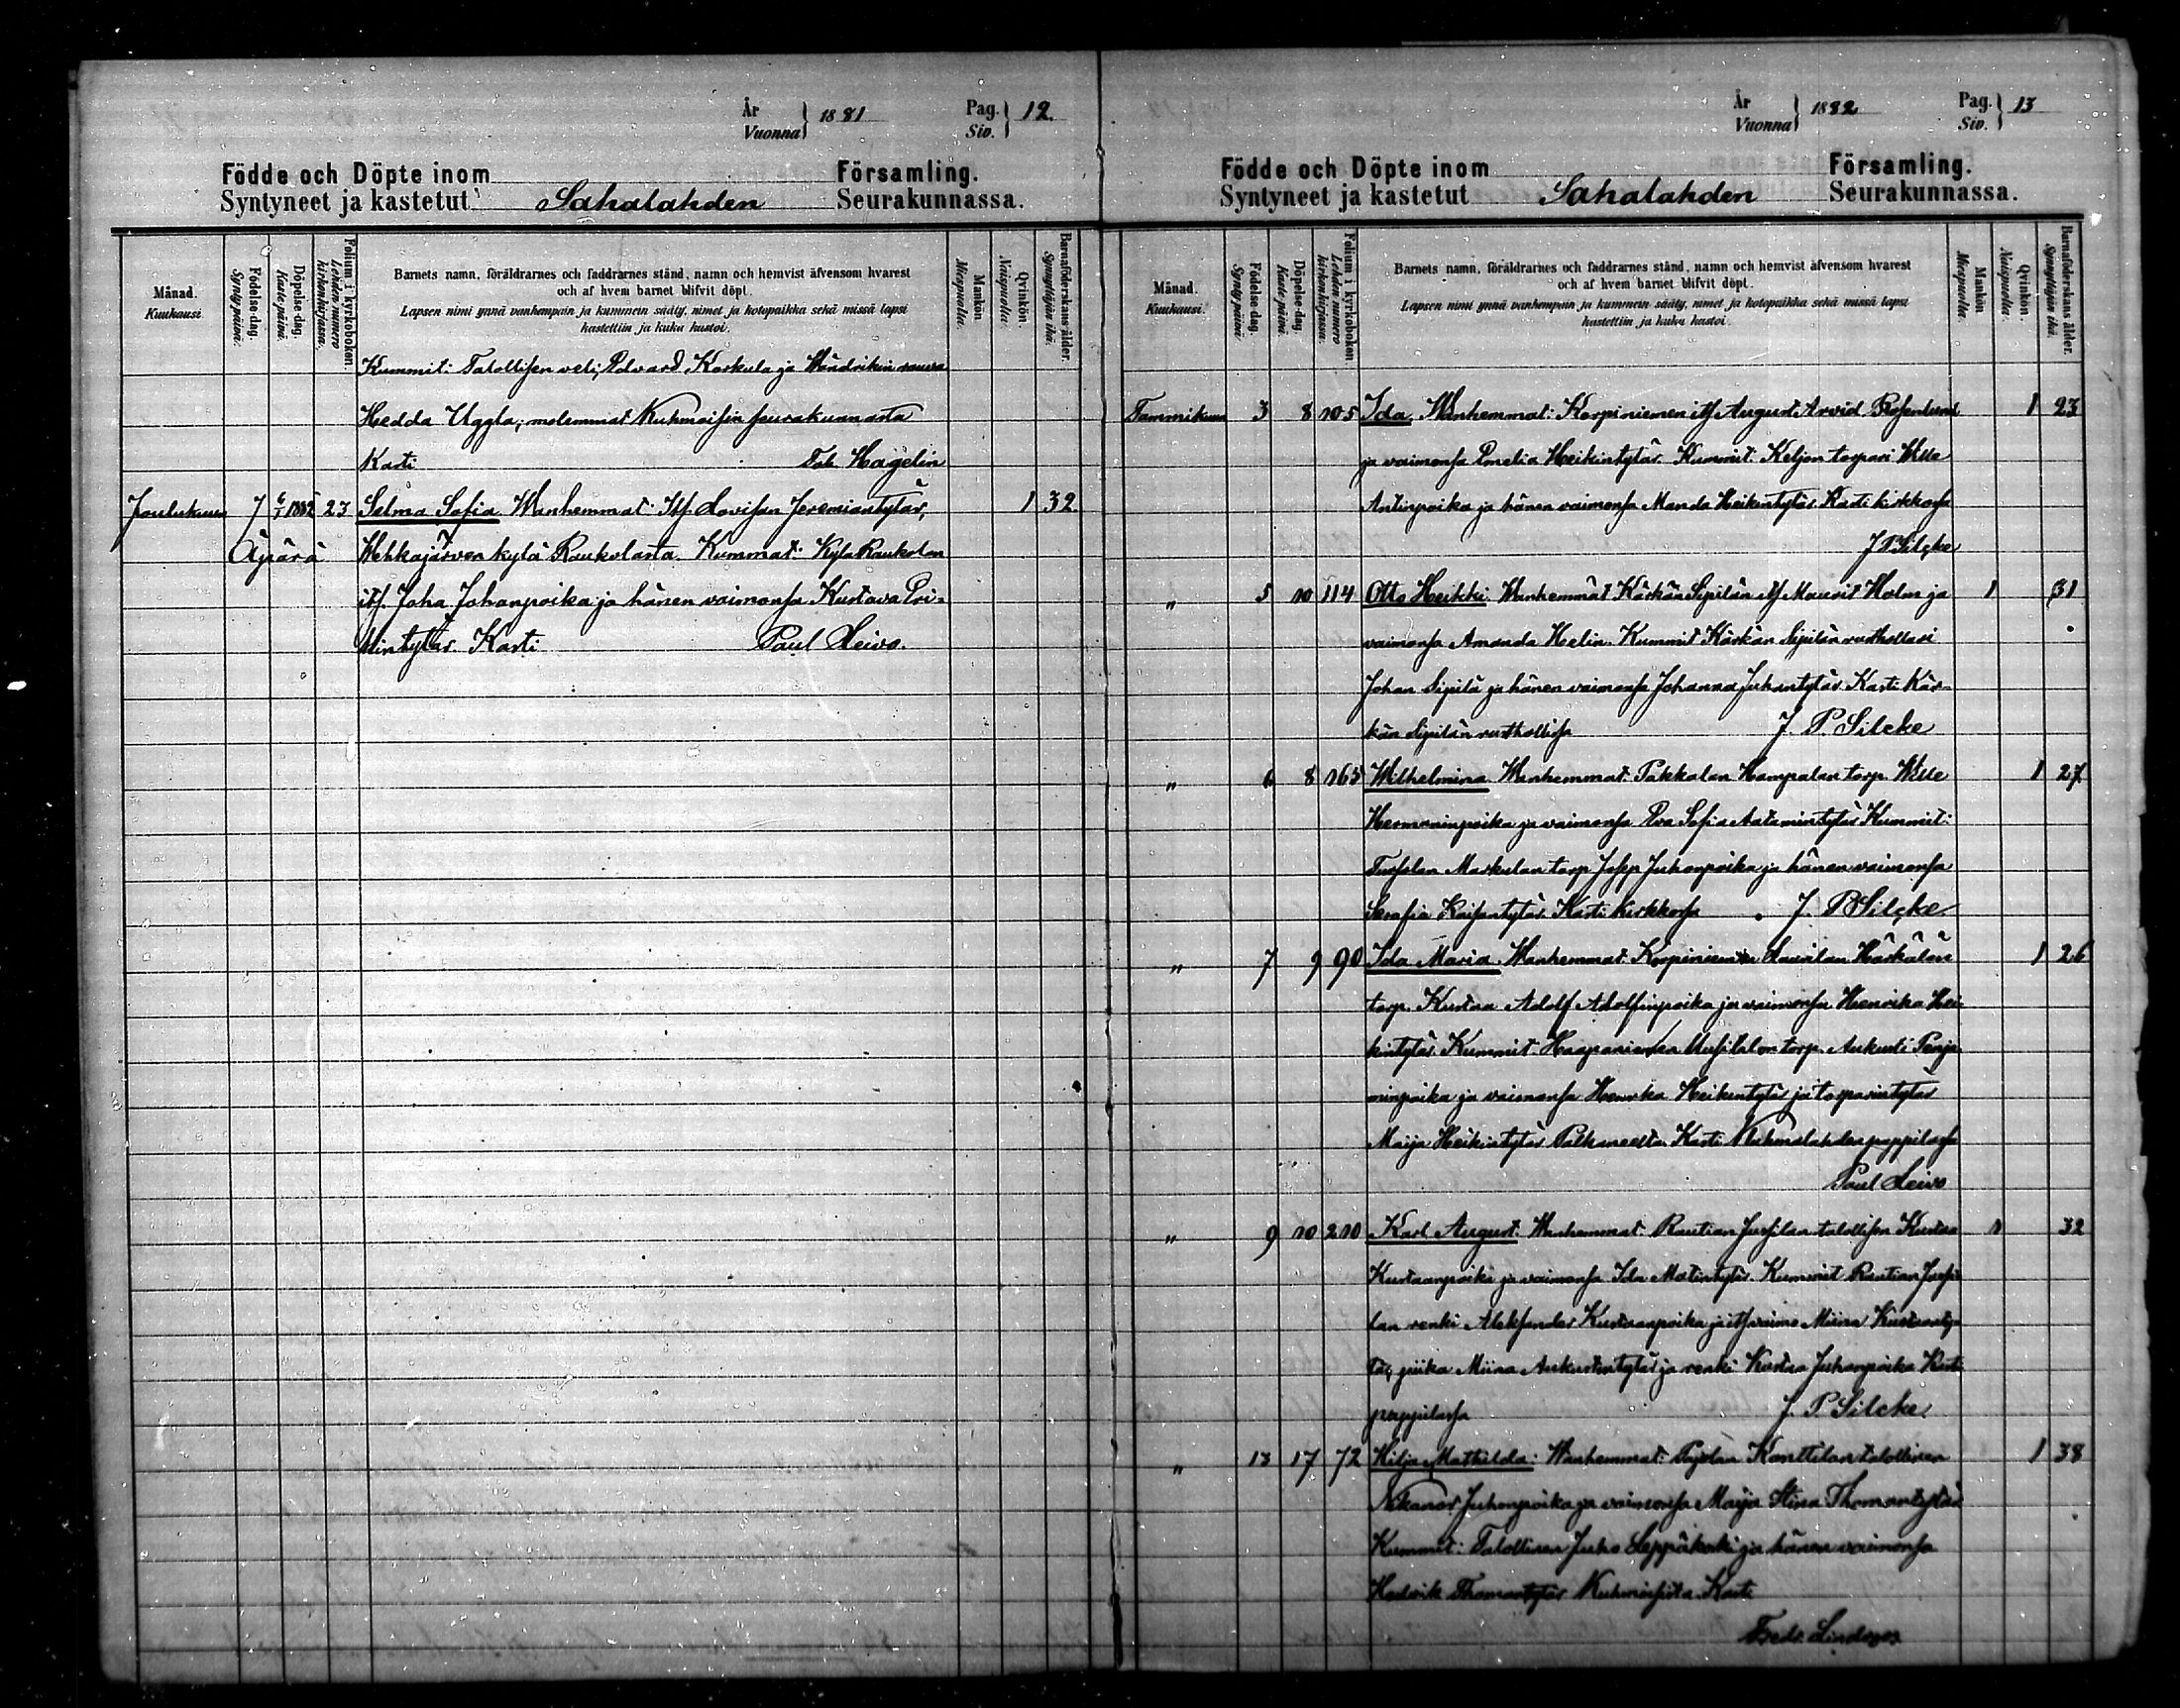 År
Vuonna } 1881
Pag.
Siv. } 12.
Födde och Döpte inom Församling.
Syntyneet ja kastetut Sahalahden Seurakunnassa.
Månad.
Kuukausi
Födelse-dag.
Synty-päivä.
Döpelse-dag.
Kaste-päivä.
Folium i kyrkoboken.
Lehden numero kirkonkirjassa.
Barnets namn, föräldrarnes och faddrarnes stånd, namn och hemvist äfvensom hvarest
och af hvem barnet blifvit döpt.
Lapsen nimi ynnä vanhempain ja kummein sääty, nimet ja kotopaikka sekä missä lapsi
kastettiin ja kuka kastoi.
Mankön.
Miespuolia.
Qvinkön.
Naispuolia.
Barnaföderskans ålder.
Synnyttäjän ikä.
Kummit: Talollisen veli, Edvard Korkula ja
Hedda Uggla, molemmat Kuhmoisin seurakunnasta
Kasti Hagelin
Joulukuun 7 6/1 1882 23 Selma Sofia Wanhemmat: Its. Lovisan Jeremiantytär, 1 32
Äpärä Wehkajärven kylä Raukolasta. Kummat: Kylä Raukolan
its. Joha Johanpoika ja hänen vaimonsa Kustava Pri-
Kasti Paul Leivo.
År
Vuonna } 1882
Pag.
Siv. } 13
Födde och Döpte inom Församling.
Syntyneet ja kastetut Sahalahden Seurakunnassa.
Månad.
Kuukausi.
Födelse-dag.
Synty-päivä
Döpelse-dag.
Kaste-päivä.
Folium i kyrkoboken.
Lehden numero kirkonkirjassa.
Barnets namn, föräldrarnes och faddrarnes stånd, namn och hemvist äfvensom hvarest
och af hvem barnet blifvit döpt.
Lapsen nimi ynnä vanhempain ja kummein sääty, nimet ja kotopaikka sekä missä lapsi
kastettiin ja kuka kastoi.
Mankön
Miespuolia.
Qvinkön.
Naispuolia.
Barnaföderskans ålder.
Synnyttäjän ikä.
Tammikuun 3 8 105 Ida Wanhemmat: Korpiniemen its August Arvid Rosenlund 1 23
ja vaimonsa Emelia Heikintytär. Kummit: Keljon torpari Wille
Antinpoika ja hänen vaimonsa Manda Heikintytär. Kasti kirkkossa
J P Silcke
" 5 10 114 Otto Heikki Wanhemmat Kärkän Sipilän its Maurit Holm ja 1 31
vaimonsa Amanda Helin. Kummit Kärkän Sipilän rusthollari
Johan Sipilä ja hänen vaimonsa Johanna Juhantytär Kasti Kär-
kän Sipilän rusthollissa J. P. Silcke
" 6 8 165 Wilhelmina Wanhemmat: Pakkalan Hampalan torp. Wille 1 27
Hermaninpoika ja vaimonsa Eva Sofia Aatamintytär Kummit:
Markulan torp. Juhonpoika ja hänen vaimonsa
Serafia Kaisantytär. Kasti kirkkossa J. P Silcke
" 7 9 90 Ida Maria Wanhemmat Korpiniemen Laurilan Härkälän 1 26
torp. Kustaa Adolf Adolfinpoika ja vaimonsa Henrika Hei-
kintytär. Kummit. Haapaniemen torp. Aukusti Penja-
minpoika ja vaimonsa Henrika Heikintytär ja torparintytär
Maija Heikintytär Kasti pappilassa
Paul Leivo
" 9 10 210 Karl August. Wanhemmat. Rautian Jussilan talollisen Kustaa 1 32
Kustaanpoika ja vaimonsa Ida Matintytär. Kummit Rautian Jussi-
lan renki Aleksander Kustaanpoika ja its vaimo Miina Kustaanty-
tär, piika Miina Aukustintytär ja renki Kustaa Juhanpoika Kasti
pappilassa J. P Silcke.
" 13 17 72 Hilja Mathilda: Wanhemmat: Konttilan talollinen 1 38
Nikanor Juhonpoika ja vaimonsa Maija Stina Thomantytär
Kummit: Talollinen Juho Leppäkoski ja hänen vaimonsa
Hedvik Thomantytär Kuhmoisista. Kasti